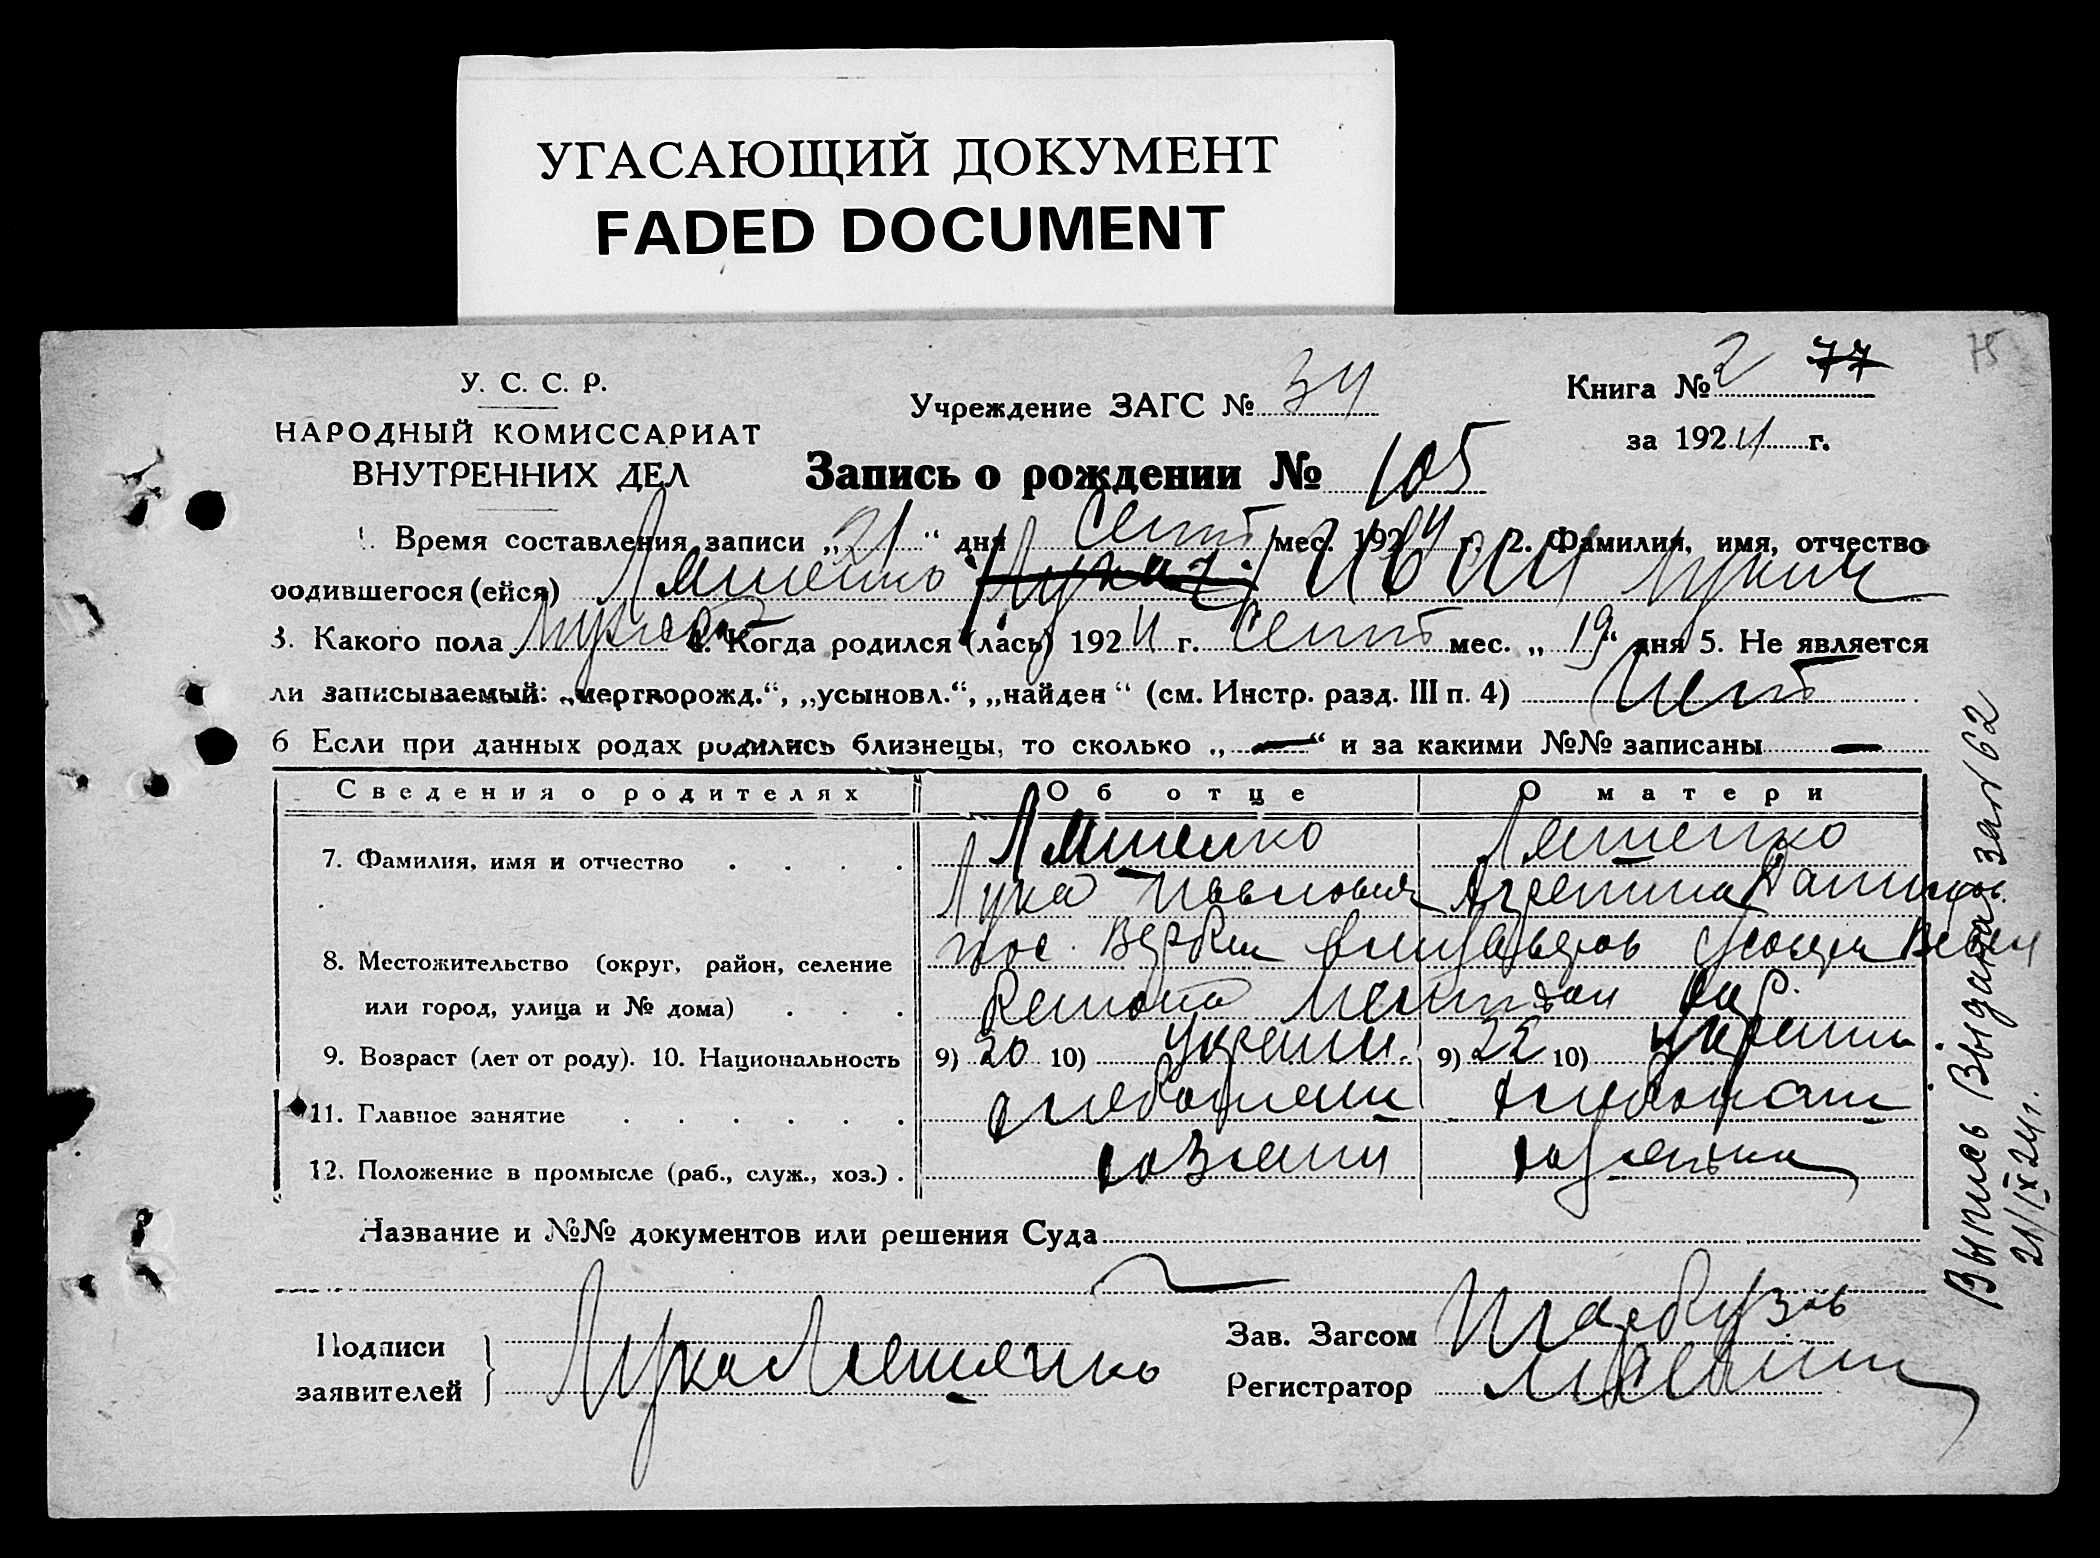 УГАСАЮЩИЙ ДОКУМЕНТ
FADED DOCUMENT
75
У. С. С. Р.
НАРОДНЫЙ КОМИССАРИАТ
ВНУТРЕННИХ ДЕЛ
Учреждение ЗАГС № 34
Книга № 2 77
за 1924 г.
Запись о рождении № 105
1. Время составления записи „21“ дня Сент мес. 1924 г. 2. Фамилия, имя, отчество
родившегося (ейся) Ляшенко Лука Иван Лукич
3. Какого пола Мужск 4. Когда родился (лась) 1924 г. Сент мес. „19“ дня 5. Не является
ли записываемый: „мертворожд.“, „усыновл.“, „найден“ (см. Инстр. разд. III п. 4) Нет
6 Если при данных родах родились близнецы, то сколько „—“ и за какими №№ записаны —
Сведения о родителях Об отце О матери
7. Фамилия, имя и отчество Ляшенко Ляшенко
Лука Павлович
8. Местожительство (округ, район, селение
или город, улица и № дома)
9. Возраст (лет от роду). 10. Национальность 9) 20 10) Украин. 9) 22 10) Украин.
11. Главное занятие хлебопаш
12. Положение в промысле (раб., служ., хоз.) хозяин хозяйка
Название и №№ документов или решения Суда
Подписи
заявителей } Лука Ляшенко
Зав. Загсом
Регистратор
Выпись Выдана за № 62
21/IX 24 г.